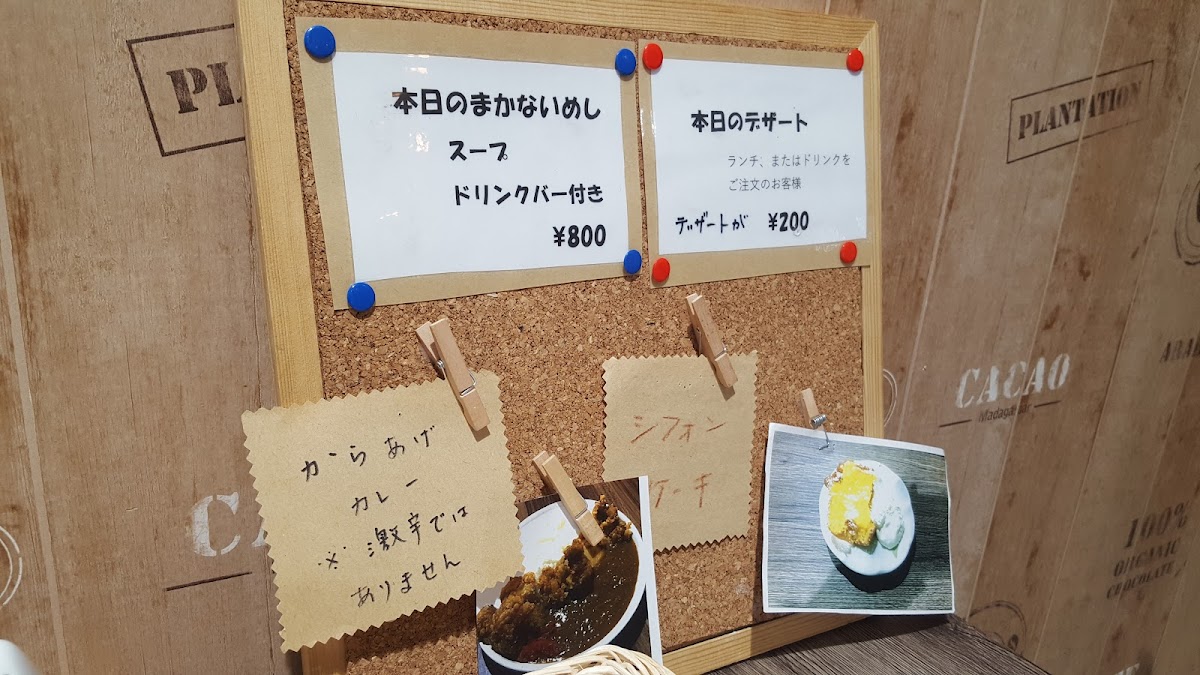 本日のまかないめし
スープ
ドリンクバー付き
¥800
本日のデザート
ランチ、またはドリンクを
ご注文のお客様
デザートが ¥200
からあげ
カレー
※激辛では
ありません
シフォン
ケーキ
PLANTATION
CACAO
Madagascar
100%
ORGANIC
CHOCOLATE